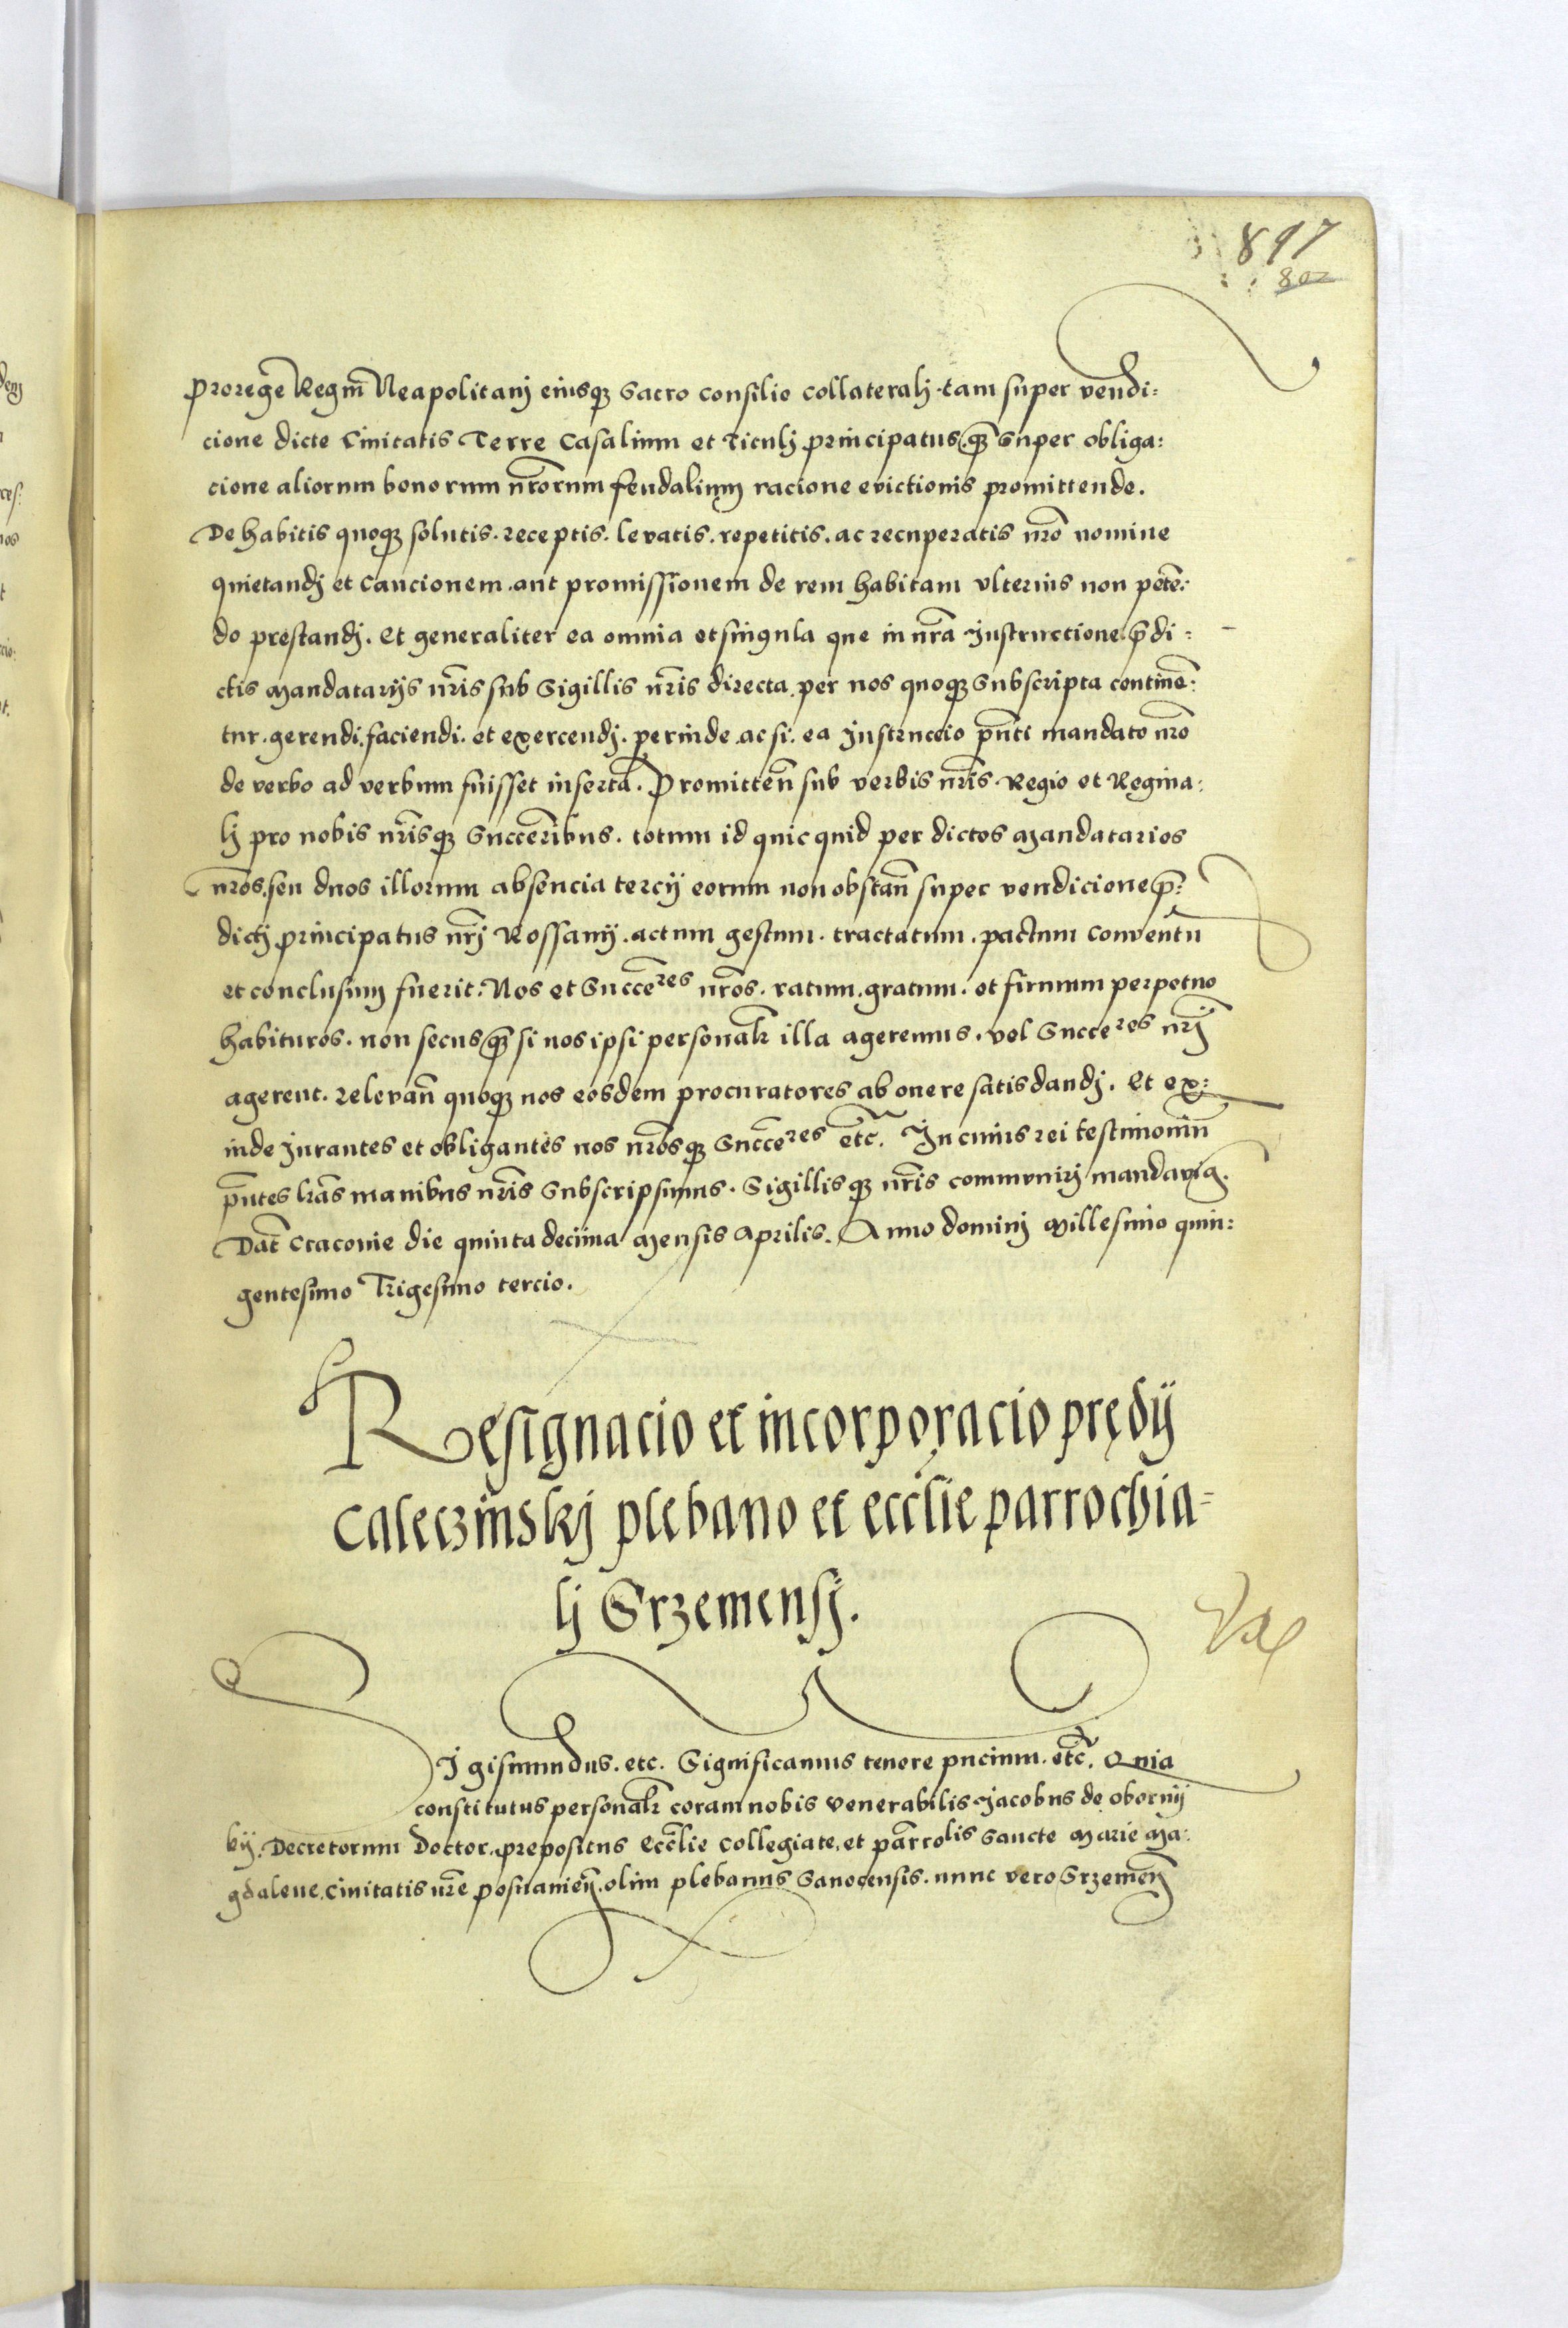 897
802
Prorege Regni̅ Neapolitanj eiusq3 Sacro consilio collateralj. tam super vendi:
cione dicte Ciuitatis Terre Casalium et Titulj principatus. q̅3 super obliga:
cione aliorum bonorum nr̅orum feudalium racione evictionis promittende.
De habitis quoq3 solutis. receptis. levatis. repetitis. ac recuperatis nr̅o nomine
quietandj et Caucionem. aut promissionem de rem habitam vlterius non pete̅:
do prestandj. Et generaliter ea omnia et singula que in nr̅a Instructione p̅di:
ctis Mandatarijs nr̅is sub Sigillis nr̅is directa per nos quoq3 Subscripta contine̅:
tur. gerendi. faciendi. et exercendj. perinde ac si. ea Instruccio p̅nti mandato nr̅o
de verbo ad verbum fuisset inserta. Promitten̅ sub verbis nr̅is. Regio et Regina:
lj pro nobis nr̅isq3 Succe̅ribus. totum id quicquid per dictos Mandatarios
nr̅os. seu duos illorum absencia tercij eorum non obstan̅ super vendicione p̅:
dictj principatus nr̅j Rossanij. actum gestum. tractatum. pactum conventu̅
et conclusum fuerit. Nos et Succe̅res nr̅os. ratum. gratum. et firmum perpetuo
habituros. non secus q̅3 si nos ipsi personalr̅ illa ageremus. vel Succeres nr̅j
agerent. relevan̅ quoq3 nos eosdem procuratores ab onere satisdandj. Et ex:
inde Jurantes et obligantes nos nr̅osq3 Succe̅res etc̅. In cuius rei testimoniu̅
p̅ntes lr̅as manibus nr̅is Subscripsimus. Sigillisq3 nr̅is communirj mandavim9.
Dat̅ Cracovie die quinta decima Mensis Aprilis. Anno dominj Millesimo quin:
gentesimo Trigesimo tercio.
Resignacio et incorporacio prędij
Caleczinskj plebano et eccl̅ie parrochia=
lj Srzemensj.
Sigismundus. etc. Significamus tenore pncium. etc̅. Quia
constitutus personalr̅ coram nobis venerabilis Jacobus de obornij
kij. Decretorum Doctor. prepositus Eccl̅ie Collegiate. et par̅rolis Sancte Marie Ma:
gdalene. Ciuitatis nr̅e posnanien̅. olim plebanus Sanocensis. nunc vero Srzemen̅